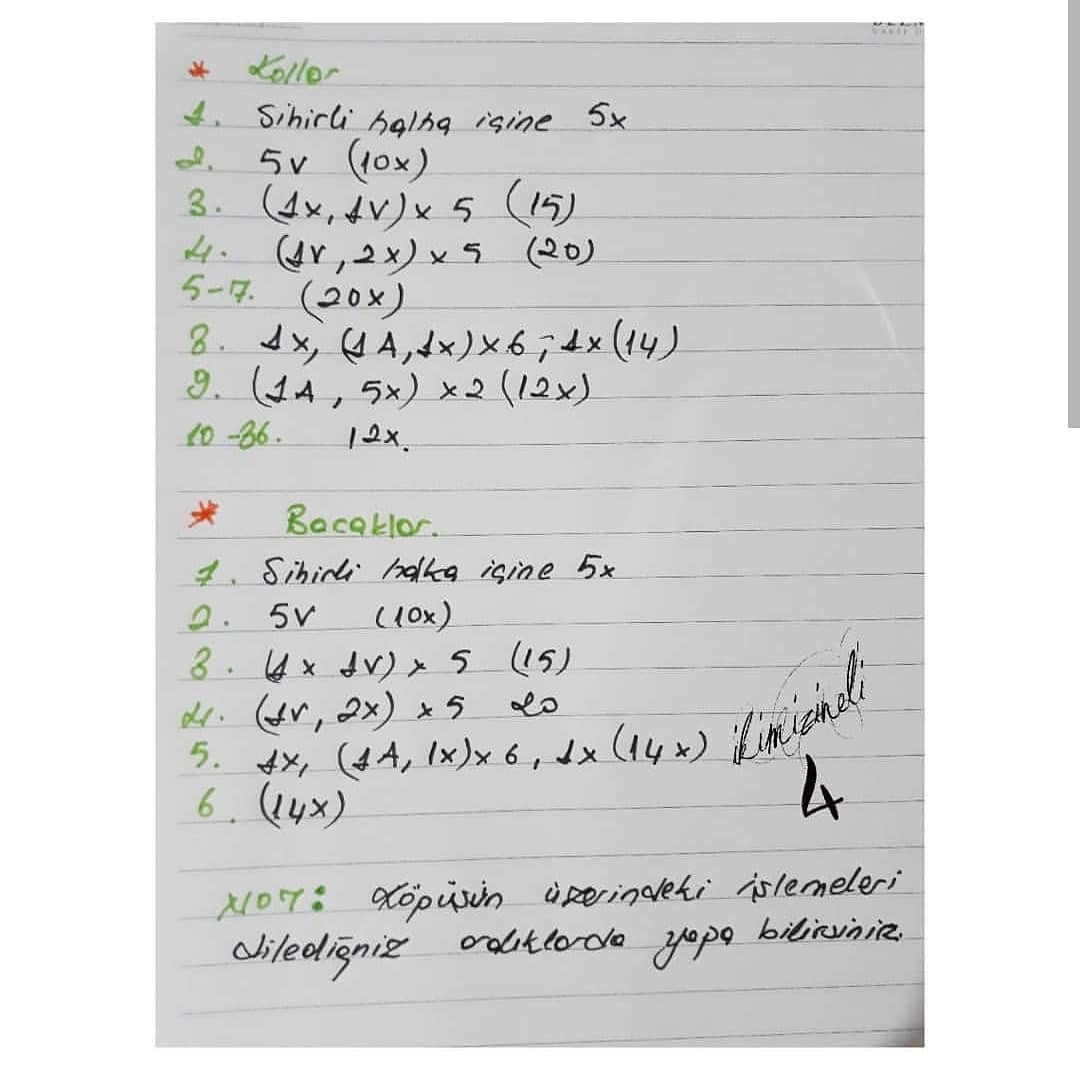 * Kollar
1. Sihirli halka içine 5x
2. 5v (10x)
3. (1x, 1v) x 5 (15)
4. (1v, 2x) x 5 (20)
5-7. (20x)
8. 1x, (1A, 1x) x 6, 1x (14)
9. (1A, 5x) x 2 (12x)
10-36. 12x.
* Bacaklar.
1. Sihirli halka içine 5x
2. 5v (10x)
3. (1x 1v) x 5 (15)
4. (1v, 2x) x 5 20
5. 1x, (1A, 1x) x 6, 1x (14x)
ikimizineli
4
6. (14x)
NOT: Köpüşün üzerindeki işlemeleri
dilediğniz aralıklarda yapa bilirsiniz.